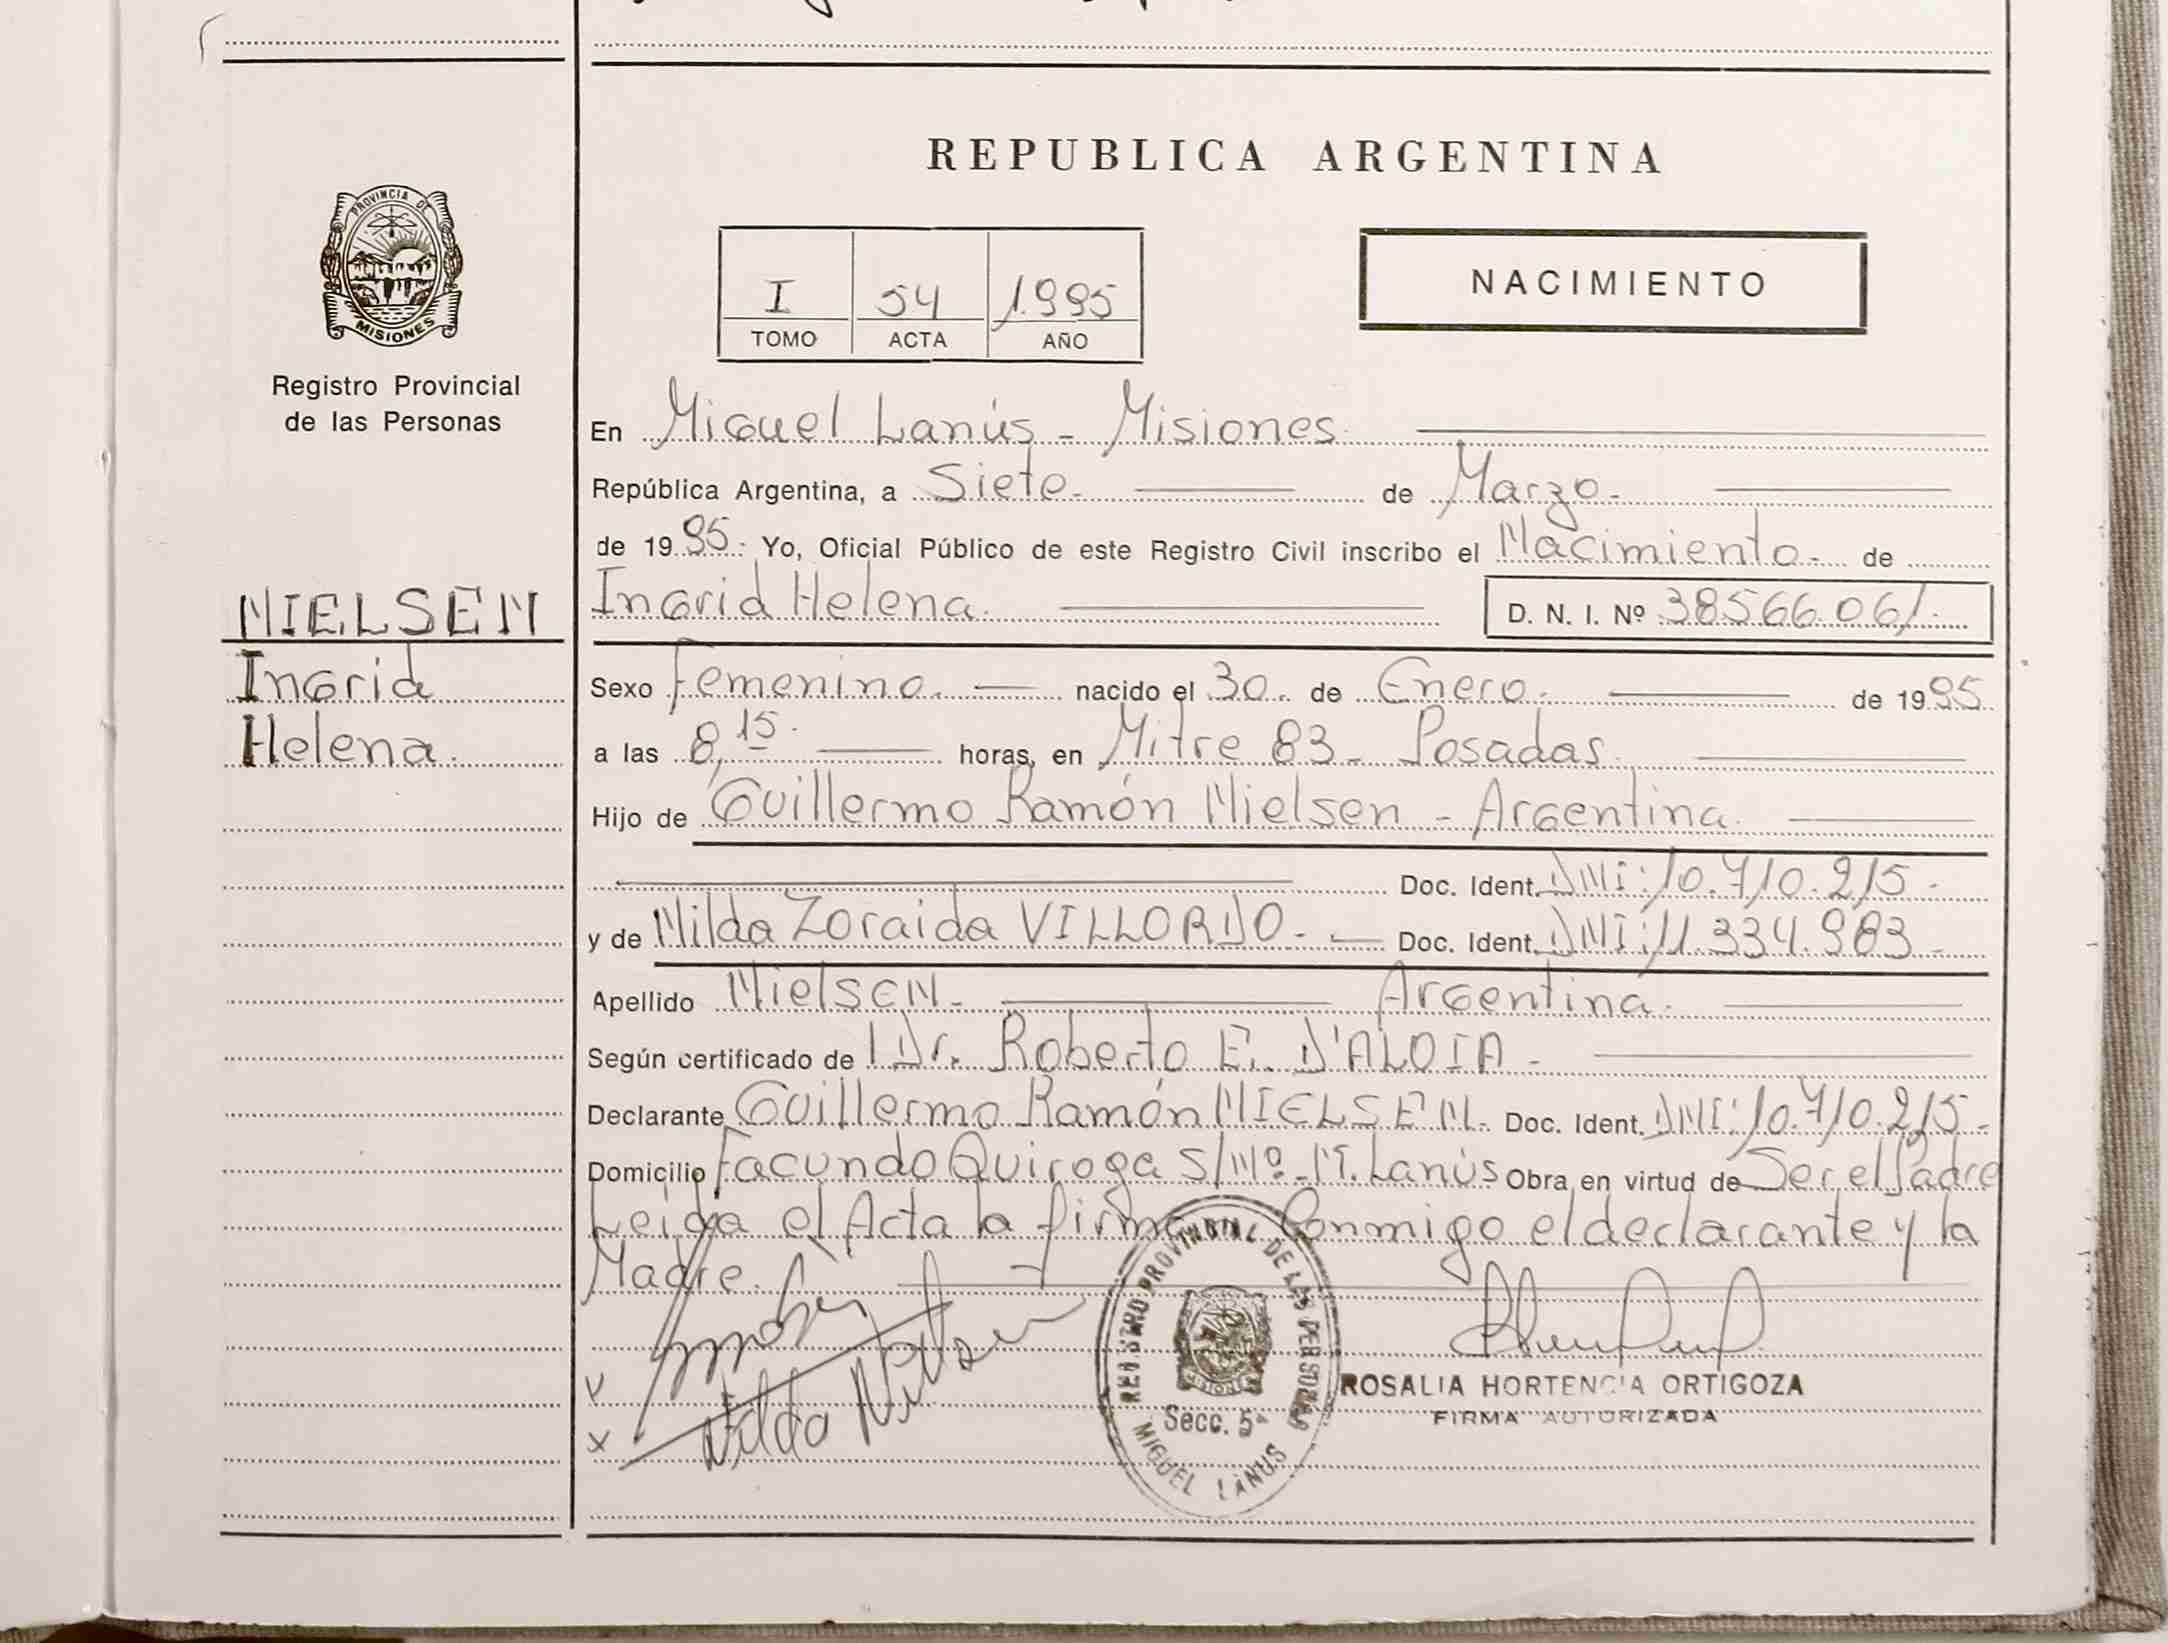 REPUBLICA ARGENTINA
PROVINCIA DE
MISIONES
Registro Provincial
de las Personas
I 54 1.995
TOMO ACTA AÑO
NACIMIENTO
En Miguel Lanús - Misiones
República Argentina, a Siete de Marzo
de 1995. Yo, Oficial Público de este Registro Civil inscribo el Nacimiento de
Ingrid Helena. D. N. I. Nº 38566.061.
NIELSEN
Ingrid
Helena.
Sexo Femenino. nacido el 30 de Enero. de 1995
a las 8,15 horas, en Mitre 83 - Posadas
Hijo de Guillermo Ramón Nielsen - Argentina
Doc. Ident. DNI: 10.710.215.-
y de Nilda Zoraida VILLORDO. Doc. Ident. DNI: 11.334.983.-
Apellido NielsEN Argentina.
Según certificado de Dr. Roberto E. D'ALOIA.
Declarante Guillermo Ramón NIELSEN. Doc. Ident. DNI: 10.710.215.-
Domicilio Facundo Quiroga S/Nº. M. Lanús Obra en virtud de Ser el Padre
Leida el Acta la firman Conmigo el declarante y la
Madre.
Nilda Nielsen
REGISTRO PROVINCIAL DE LAS PERSONAS
MISIONES
Secc. 5ª
MIGUEL LANUS
ROSALIA HORTENCIA ORTIGOZA
FIRMA AUTORIZADA